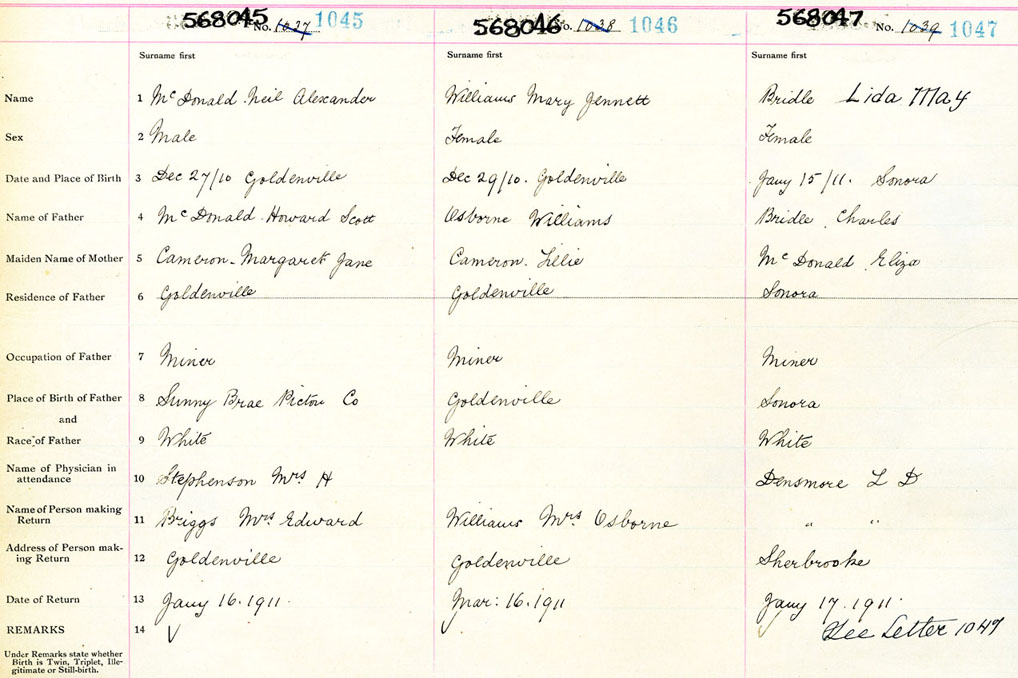 568045 No. 1037 1045 568046 No. 1038 1046 568047 No. 1039 1047
Surname first Surname first Surname first
Name 1 McDonald Neil Alexander Williams Mary Jennett Bridle Lida May
Sex 2 Male Female Female
Date and Place of Birth 3 Dec 27/10 Goldenville Dec 29/10. Goldenville Jany 15/11. Sonora
Name of Father 4 McDonald Howard Scott Osborne Williams Bridle Charles
Maiden Name of Mother 5 Cameron. Margaret Jane Cameron. Lillie McDonald Eliza
Residence of Father 6 Goldenville Goldenville Sonora
Occupation of Father 7 Miner Miner Miner
Place of Birth of Father 8 Sunny Brae Pictou Co Goldenville Sonora
and
Race of Father 9 White White White
Name of Physician in
attendance 10 Stephenson Mrs H Densmore L D
Name of Person making
Return 11 Briggs Mrs Edward Williams Mrs Osborne " "
Address of Person mak-
ing Return 12 Goldenville Goldenville Sherbrooke
Date of Return 13 Jany 16.1911. Mar: 16.1911 Jany 17.1911.
REMARKS 14 See Letter 1047
Under Remarks state whether
Birth is Twin, Triplet, Ille-
gitimate or Still-birth.